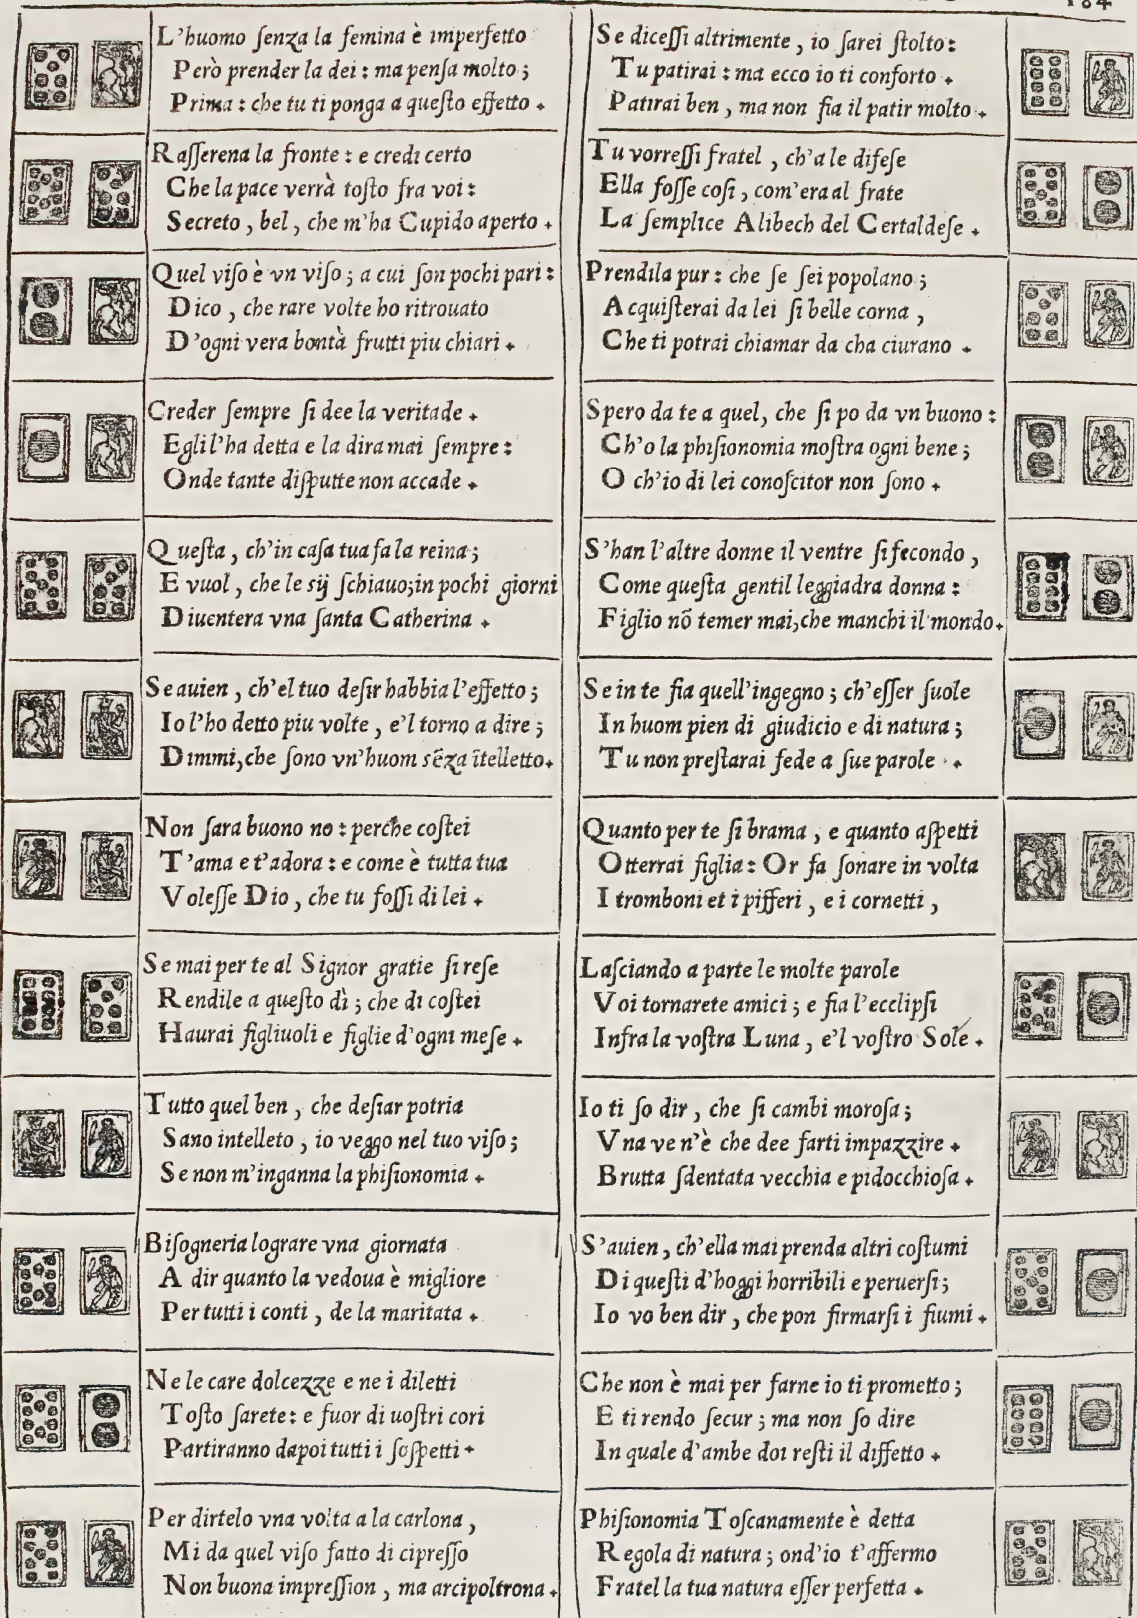 184
L'huomo ſenza la femina è imperfetto
Però prender la dei : ma penſa molto ;
Prima : che tu ti ponga a queſto effetto .
Raſſerena la fronte : e credi certo
Che la pace verrà toſto fra voi :
Secreto , bel , che m'ha Cupido aperto .
Quel viſo è vn viſo ; a cui ſon pochi pari :
Dico , che rare volte ho ritrouato
D'ogni vera bontà frutti piu chiari .
Creder ſempre ſi dee la veritade .
Egli l'ha detta e la dira mai ſempre :
Onde tante diſputte non accade .
Queſta , ch'in caſa tua fa la reina ;
E vuol , che le sij ſchiauo ; in pochi giorni
Diuentera vna ſanta Catherina .
Se auien , ch'el tuo deſir habbia l'effetto ;
Io l'ho detto piu volte , e'l torno a dire ;
Dimmi, che ſono vn'huom sẽza ĩtelletto.
Non ſara buono no : perche coſtei
T'ama e t'adora : e come è tutta tua
Voleſſe Dio , che tu foſſi di lei .
Se mai per te al Signor gratie ſi reſe
Rendile a queſto dì ; che di coſtei
Haurai figliuoli e figlie d'ogni meſe .
Tutto quel ben , che deſiar potria
Sano intelleto , io veggo nel tuo viſo ;
Se non m'inganna la phiſionomia .
Biſogneria lograre vna giornata
A dir quanto la vedoua è migliore
Per tutti i conti , de la maritata .
Ne le care dolcezze e ne i diletti
Toſto ſarete : e fuor di uoſtri cori
Partiranno dapoi tutti i ſoſpetti .
Per dirtelo vna volta a la carlona ,
Mi da quel viſo fatto di cipreſſo
Non buona impreſſion , ma arcipoltrona .
Se diceſſi altrimente , io ſarei ſtolto :
Tu patirai : ma ecco io ti conforto .
Patirai ben , ma non fia il patir molto .
Tu vorreſſi fratel , ch'a le difeſe
Ella foſſe coſi , com'era al frate
La ſemplice Alibech del Certaldeſe .
Prendila pur : che ſe ſei popolano ;
Acquiſterai da lei ſi belle corna ,
Che ti potrai chiamar da cha ciurano .
Spero da te a quel, che ſi po da vn buono :
Ch'o la phiſionomia moſtra ogni bene ;
O ch'io di lei conoſcitor non ſono .
S'han l'altre donne il ventre ſi fecondo ,
Come queſta gentil leggiadra donna :
Figlio nõ temer mai, che manchi il mondo.
Se in te fia quell'ingegno ; ch'eſſer ſuole
In huom pien di giudicio e di natura ;
Tu non preſtarai fede a ſue parole .
Quanto per te ſi brama , e quanto aſpetti
Otterrai figlia : Or fa ſonare in volta
I tromboni et i pifferi , e i cornetti ,
Laſciando a parte le molte parole
Voi tornarete amici ; e fia l'ecclipſi
Infra la voſtra Luna , e'l voſtro Sole .
Io ti ſo dir , che ſi cambi moroſa ;
Vna ve n'è che dee farti impazzire .
Brutta ſdentata vecchia e pidocchioſa .
S'auien , ch'ella mai prenda altri coſtumi
Di queſti d'hoggi horribili e peruerſi ;
Io vo ben dir , che pon firmarſi i fiumi .
Che non è mai per farne io ti prometto ;
E ti rendo ſecur ; ma non ſo dire
In quale d'ambe doi reſti il diffetto .
Phiſionomia Toſcanamente è detta
Regola di natura ; ond'io t'affermo
Fratel la tua natura eſſer perfetta .